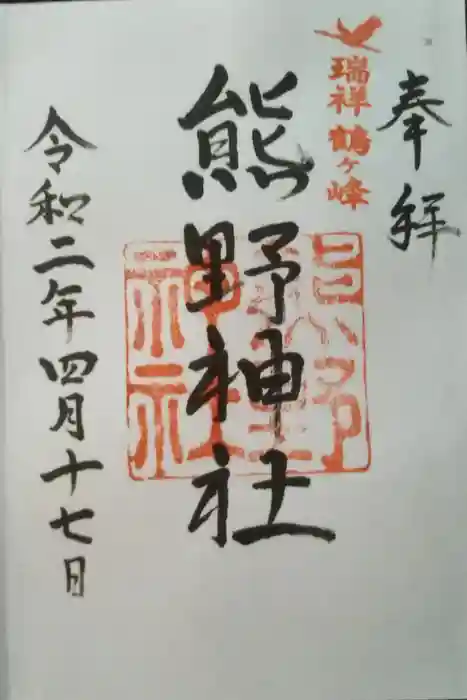 奉拝
瑞祥鶴ヶ峰
熊野神社
熊野
神社
令和二年四月十七日